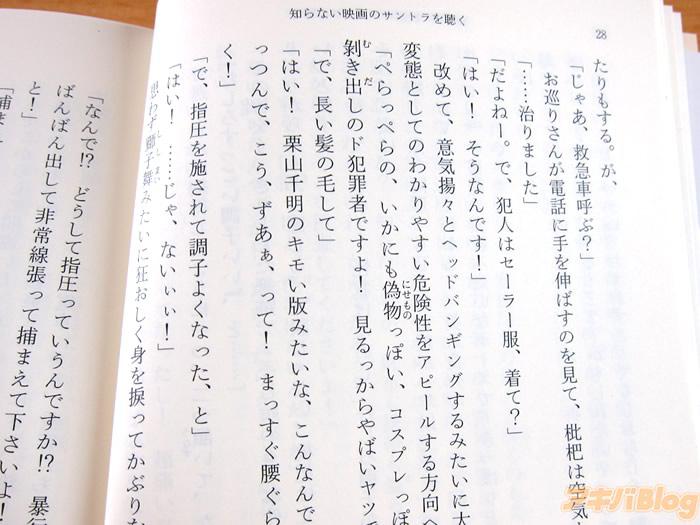 知らない映画のサントラを聴く
28
たりもする。が、
「じゃあ、救急車呼ぶ？」
お巡りさんが電話に手を伸ばすのを見て、枇杷は空気
「……治りました」
「だよねー。で、犯人はセーラー服、着て？」
「はい！　そうなんです！」
改めて、意気揚々とヘッドバンギングするみたいに大
変態としてのわかりやすい危険性をアピールする方向へ
「ぺらっぺらの、いかにも偽物っぽい、コスプレっぽ
にせもの
剝き出しのド犯罪者ですよ！　見るっからやばいヤツで
む　だ
「で、長い髪の毛して」
「はい！　栗山千明のキモい版みたいな、こんなんで
っつんで、こう、ずあぁ、って！　まっすぐ腰ぐら
く！」
「で、指圧を施されて調子よくなった、と」
「はい！　……じゃ、ないぃぃ！」
思わず獅子舞みたいに狂おしく身を捩ってかぶりな
ししまい
「なんで!?　どうして指圧っていうんですか!?　暴行
ばんばん出して非常線張って捕まえて下さいよ！
と！」
「捕ま
アキバBlog